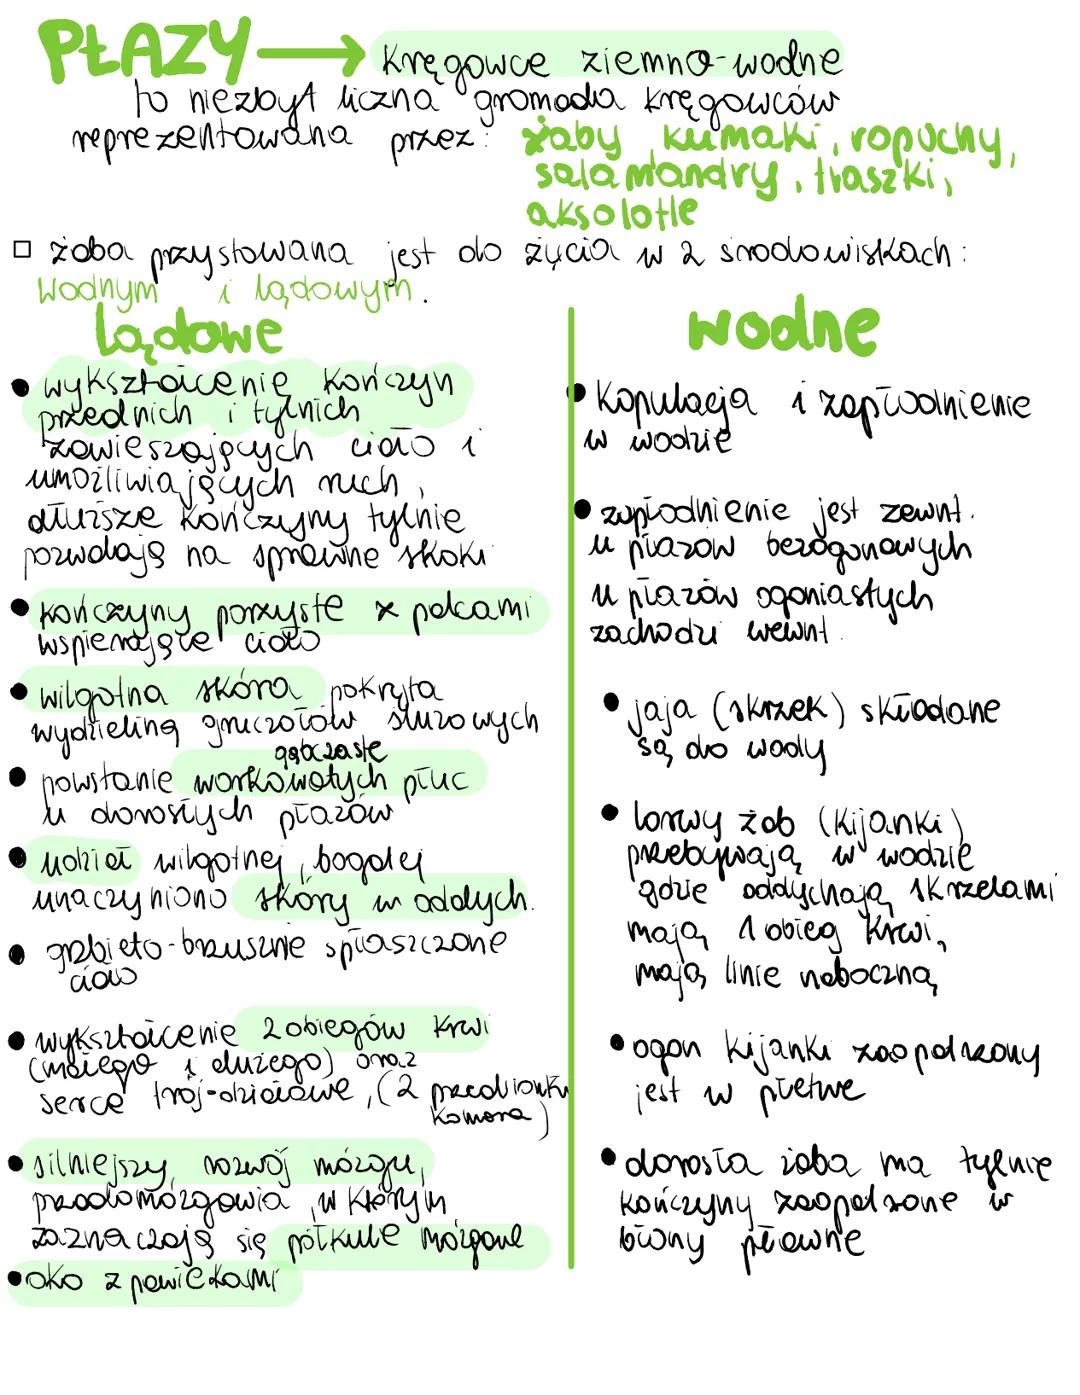 PŁAZY → kręgowce ziemno-wodne
to niezbyt liczna gromada kręgowców
reprezentowana przez: żaby, kumaki, ropuchy,
salamandry, traszki,
aksolotle
□ żaba przystowana jest do życia w 2 środowiskach:
wodnym i lądowym.
lądowe
• wykształcenie kończyn
przednich i tylnich
zawieszających ciało i
umożliwiających ruch,
dłuższe kończyny tylnie
pozwalają na sprawne skoki
• kończyny parzyste z palcami
wspierające ciało
• wilgotna skóra pokryta
wydzieliną gruczołów śluzowych
gąbczaste
• powstanie workowatych płuc
u dorosłych płazów
• udział wilgotnej, bogatej
unaczyniono skóry w oddych.
• grzbieto-brzusznie spłaszczone
ciało
• wykształcenie 2 obiegów krwi
(małego i dużego) oraz
serce trój-działowe, (2 przedsionki
komora)
• silniejszy rozwój mózgu,
przodomózgowia, w którym
zaznaczają się półkule mózgowe
• oko z powiekami
wodne
• kopulacja i zapłodnienie
w wodzie
• zapłodnienie jest zewnt.
u płazów bezogonowych
u płazów ogoniastych
zachodzi wewnt.
• jaja (skrzek) składane
są do wody
• larwy żab (kijanki)
przebywają w wodzie
gdzie oddychają skrzelami
mają 1 obieg krwi,
mają linie naboczną
• ogon kijanki zaopatrzony
jest w płetwe
• dorosła żaba ma tylnie
kończyny zaopatrzone w
błony pławne